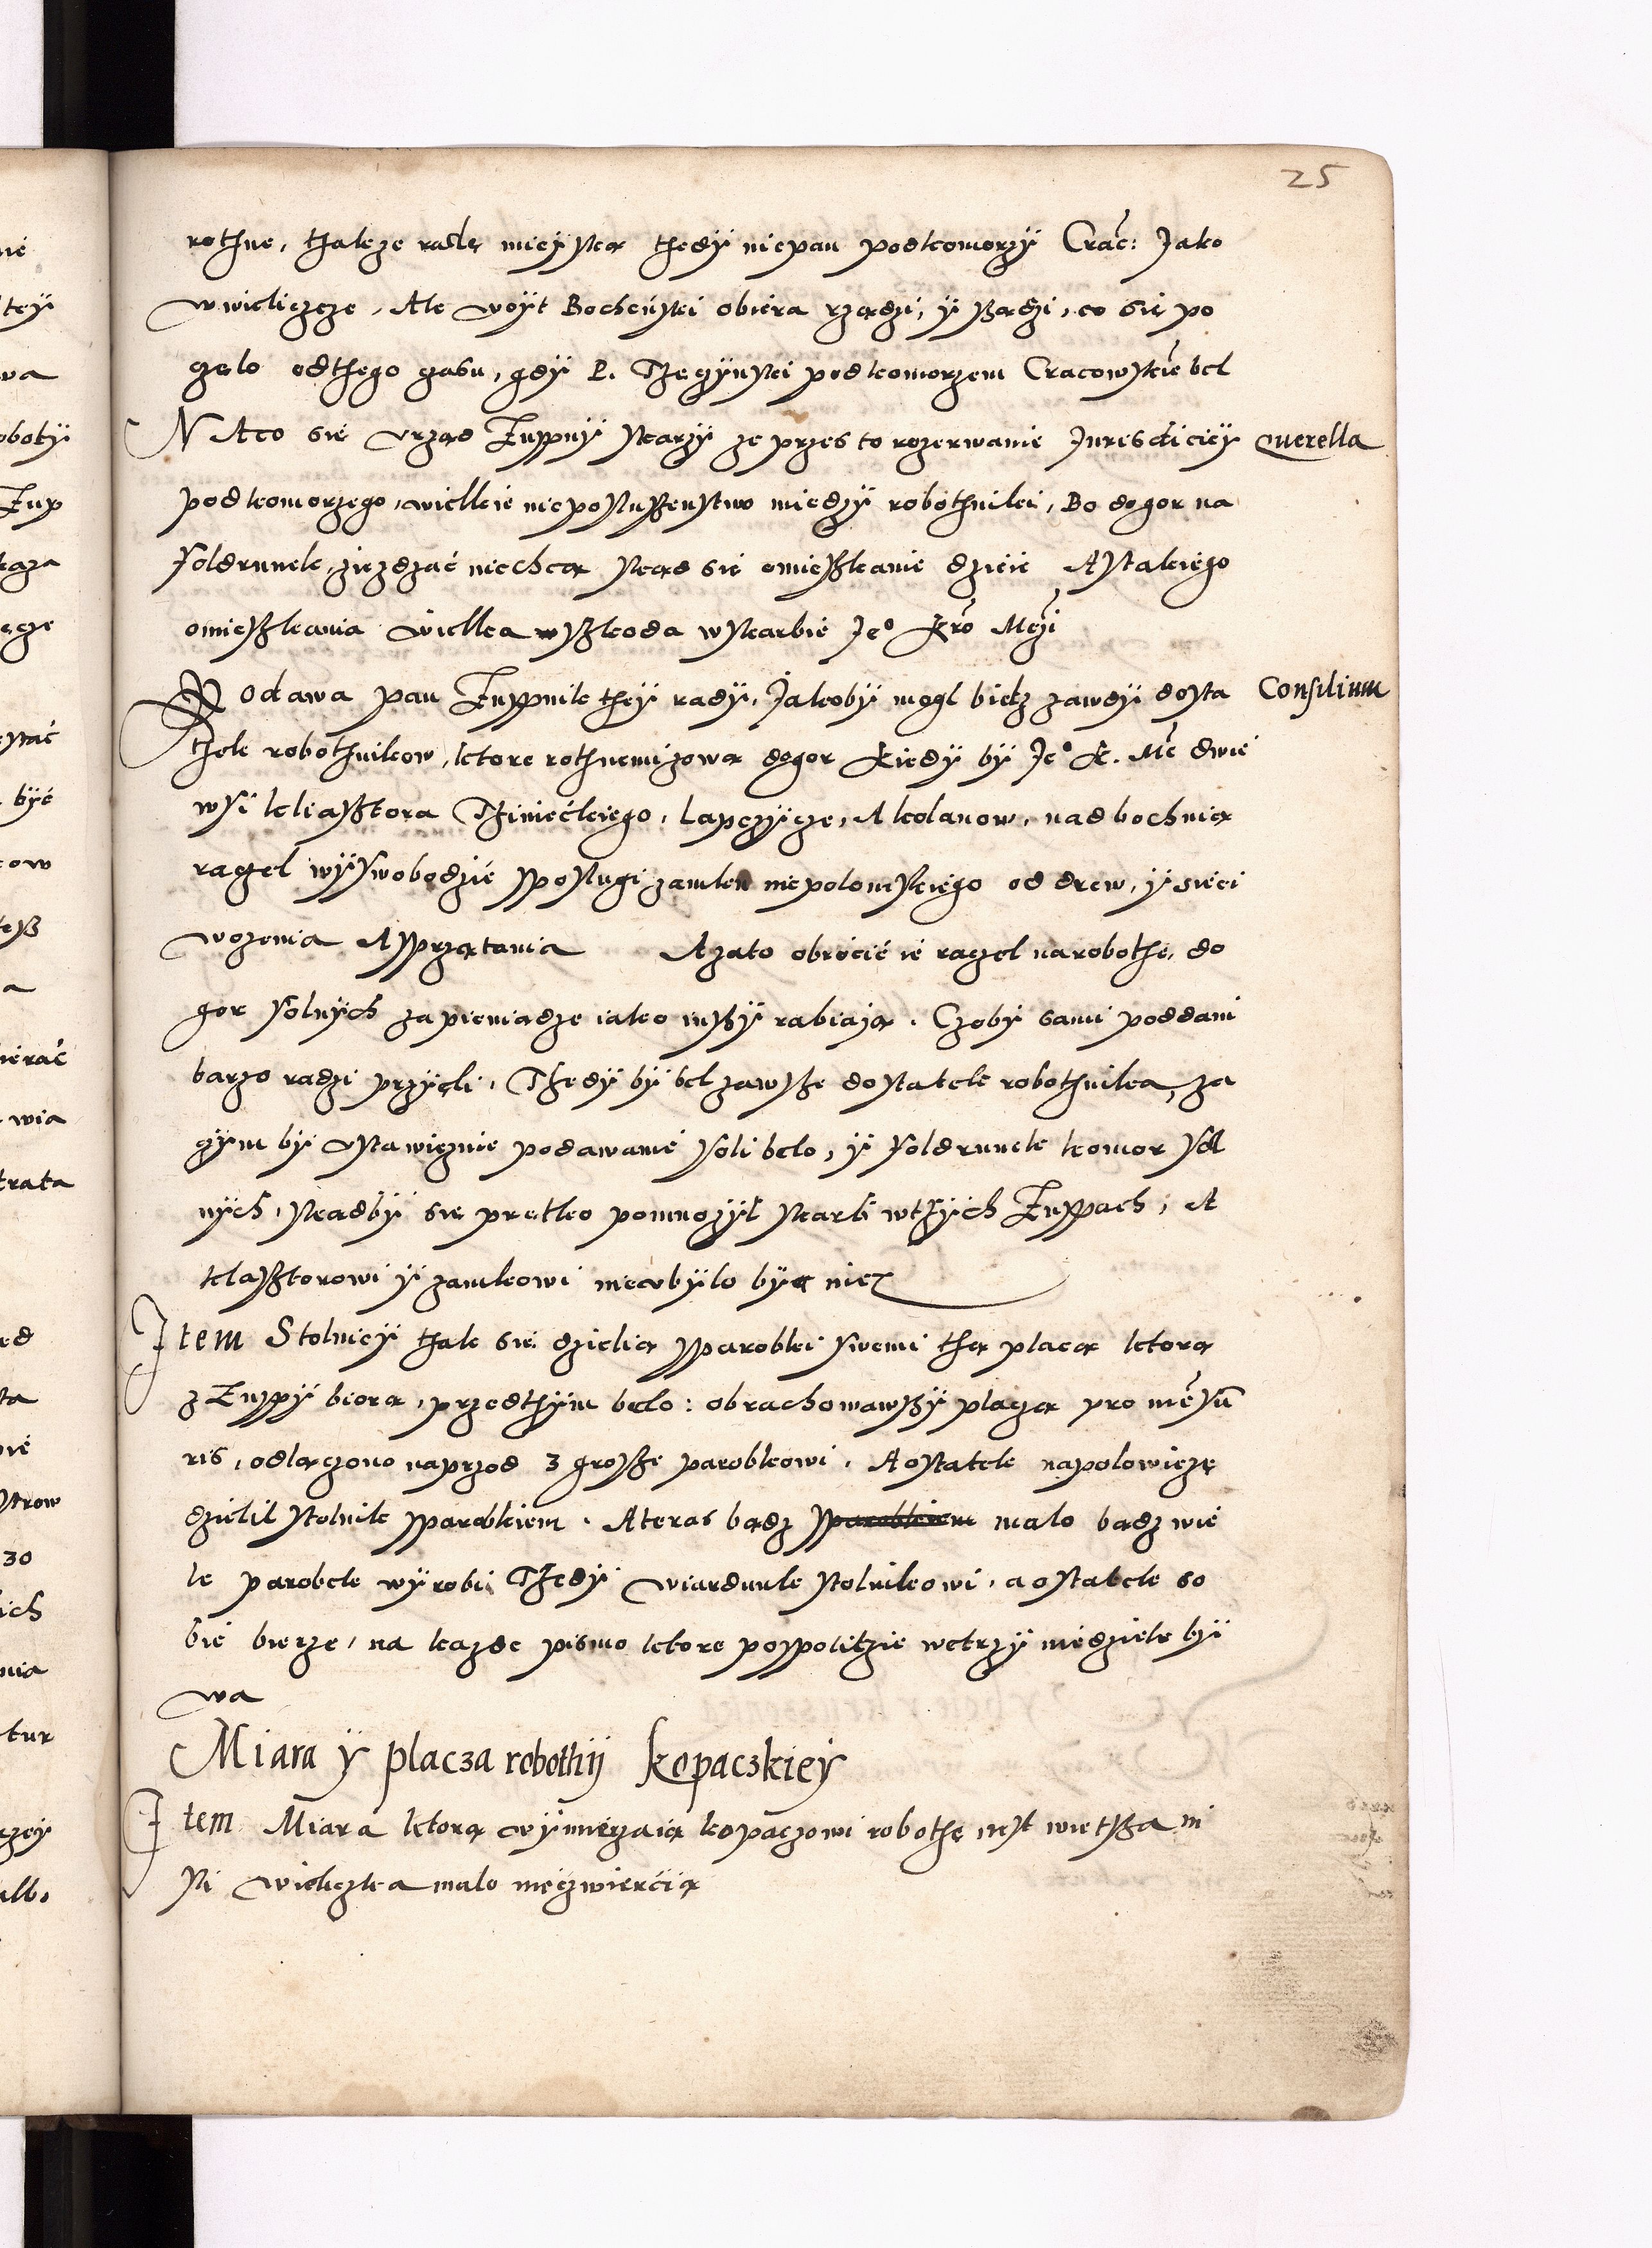 25
rothne, thakze radę mieyską thedy nie pan podkomorzy Crac: Jako
w wieliczcze, Ale woyt Bocheński obiera rządzi, y sządzi, co sie po
czelo odthego czasu, gdy P. Tęczynski podkomorzem Cracowskiē bel
NA co sie vrząd Zuppny skarzy ze przes to rozerwanie Jurisdiciey
querella
podkomorzego, wielkie nieposluszenstwo miedzy robothniki, Bo dogor na
foldrunek, ziezdzać niechcą skąd sie omieszkanie dzieie A stakiego
omieszkania wielka szkoda wskarbie Je° Kro Mczi
Podawa pan Zuppnik they rady, Jakoby mogl bicz zawdy dosta
Consilium
thek robothnikow, ktore rothnemi zową dogor Kiedy by Je° K. Mc dwie
wsi kliasztora Tyniećkiego, Lapczycze, A kolanow, nad bochnią
raczel wyswobodzić sposlugi zamku niepolomskiego od drew, y sieci
wozenia A sprzątania A zato obrocić ie raczel na robothe, do
gor solnych za pieniądze iako inszy rabiaią. Czoby sami poddani
barzo radzi przyeli, Thedy by bel zawsze dostatek robothnika, za
czym by vstawicznie podawanie soli belo, y foldrunek komor sol
nych, skądby sie prętko pomnozyl skarb wthych Zuppach, A
klasztorowi y zamkowi nievbylo by nic
Item Stolniczy thak sie dzielią sparobki swemi tha placą ktorą
z Zuppy biorą, przedthym belo: obrachowawszy placzą pro mēsu
ris, odlączono naprzod 3 grosze parobkowi, A ostatek napolowicze
dzielil stolnik sparobkiem. A teras bądz malo bądz wie
le parobek wyrobi Thedy wiardunk stolnikowi, a ostatek so
bie bierze, na kazde pismo ktore pospolitzie wetrzy niedziele by
wa
Miara y placza robothy kopaczkiey
Item Miara ktorą wymierzaią kopaczowi robothe iest wietsza ni
sli wieliczka malo nie czwiercią